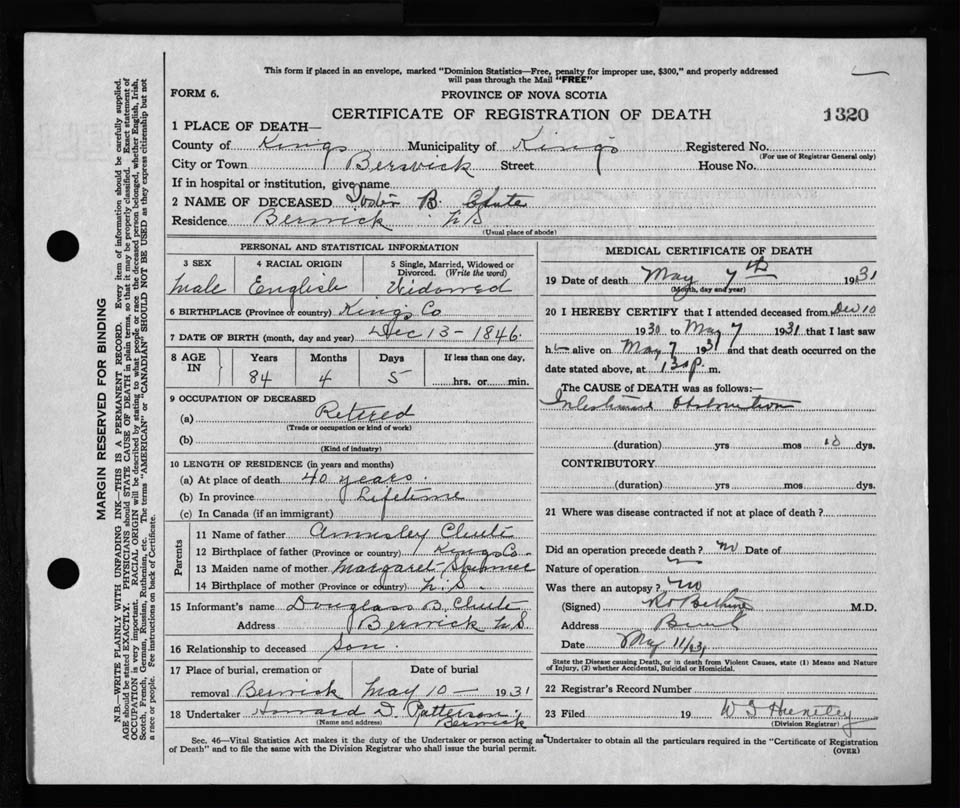 This form if placed in an envelope, marked "Dominion Statistics—Free, penalty for improper use, $300," and properly addressed
will pass through the Mail "FREE"
FORM 6. PROVINCE OF NOVA SCOTIA
CERTIFICATE OF REGISTRATION OF DEATH 1320
1 PLACE OF DEATH—
County of Kings Municipality of Kings Registered No.
(For use of Registrar General only)
City or Town Berwick Street House No.
If in hospital or institution, give name
2 NAME OF DECEASED B. Chute
Residence Berwick N.S.
(Usual place of abode)
PERSONAL AND STATISTICAL INFORMATION
3 SEX 4 RACIAL ORIGIN 5 Single, Married, Widowed or
Divorced. (Write the word)
Male English Widowed
6 BIRTHPLACE (Province or country) Kings Co
7 DATE OF BIRTH (month, day and year) Dec 13 - 1846
8 AGE IN Years Months Days If less than one day,
84 4 5 hrs. or min.
9 OCCUPATION OF DECEASED
(a) Retired
(Trade or occupation or kind of work)
(b)
(Kind of industry)
10 LENGTH OF RESIDENCE (in years and months)
(a) At place of death 40 years.
(b) In province Lifetime
(c) In Canada (if an immigrant)
Parents
11 Name of father Chute
12 Birthplace of father (Province or country) Kings Co.
13 Maiden name of mother Margaret Skinner
14 Birthplace of mother (Province or country) N.S.
15 Informant's name Douglass B. Chute
Address Berwick N.S.
16 Relationship to deceased Son
17 Place of burial, cremation or Date of burial
removal Berwick May 10 - 1931
18 Undertaker Howard D. Patterson
(Name and address) Berwick
MEDICAL CERTIFICATE OF DEATH
19 Date of death May 7th 1931
(Month, day and year)
20 I HEREBY CERTIFY that I attended deceased from Dec 10
1930 to May 7 1931 that I last saw
h alive on May 7 1931 and that death occurred on the
date stated above, at 130 p. m.
The CAUSE OF DEATH was as follows:—
Intestinal Obstruction
(duration) yrs mos 10 dys.
CONTRIBUTORY
(duration) yrs mos dys.
21 Where was disease contracted if not at place of death?
Did an operation precede death? no Date of
Nature of operation
Was there an autopsy? no
(Signed) M.D.
Address
Date May 11/31
State the Disease causing Death, or in death from Violent Causes, state (1) Means and Nature
of Injury, (2) whether Accidental, Suicidal or Homicidal.
22 Registrar's Record Number
23 Filed 19
(Division Registrar)
Sec. 46—Vital Statistics Act makes it the duty of the Undertaker or person acting as Undertaker to obtain all the particulars required in the "Certificate of Registration
of Death" and to file the same with the Division Registrar who shall issue the burial permit. (OVER)
MARGIN RESERVED FOR BINDING
N.B.—WRITE PLAINLY WITH UNFADING INK—THIS IS A PERMANENT RECORD. Every item of information should be carefully supplied.
AGE should be stated EXACTLY. PHYSICIANS should STATE CAUSE OF DEATH in plain terms, so that it may be properly classified. Exact statement of
OCCUPATION is very important. RACIAL ORIGIN will be described by stating to what people or race the deceased person belonged, whether English, Irish,
Scotch, French, German, Russian, Ruthenian, etc. The terms "AMERICAN" or "CANADIAN" SHOULD NOT BE USED as they express citizenship but not
a race or people. See instructions on back of Certificate.